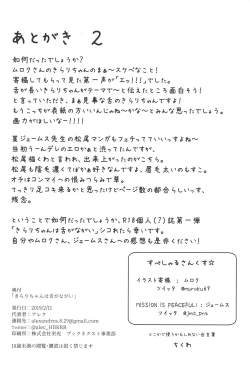 あとがき 2
如何だったでしょうか?
ムロクさんのきらりちゃんのまぁ~スケベなこと!
寄稿してもらって見た第一声が「エッ!!!」でした。
舌が長いきらりちゃんがテーマで~と伝えたところ面白そう!
と言っていただき、まぁ見事な舌のきらりちゃんですよ!
もうこっちが表紙の方いいんじゃね~かな~とみんな思ったでしょう。
画力がほしいなー!!!!
星ジェームス先生の松尾マンガもフェチってていいっすよね~
当初うーんデレのエロかぁと渋ってたんですが、
松尾編くわと言われ、出来上がったのがこちら。
松尾も陰毛濃くてぼかぁ好みなんですよな。眉も太いのもすこ。
オチはコンマイへの恨みつらみで草。
てっきり足コキ来るかと思ったけどページ数の都合らしいっす、
残念。
ということで如何だったでしょうか、R18個人(?)誌第一弾
「きらりちゃんは舌がながい」シコれたら幸いです。
自分やムロクさん、ジェームスさんへの感想も是非ください!
すぺしゃるさんくす☆
イラスト寄稿 : ムロク
ツイッタ @muroku69
MISSION IS PEACEFUL! : ジェームス
ツイッタ @jms_pro
奥付
「きらりちゃんは舌がながい」
発行日:2019/2/11
代表者:アレク
連絡先:alexandros.8.29@gmail.com
Twitter:@alec_HBKRB
印刷所:株式会社栄光 ブックネクスト事業部
18歳未満の閲覧・購読は固く禁じます
どこかで使うかもしれない合言葉
ちくわ